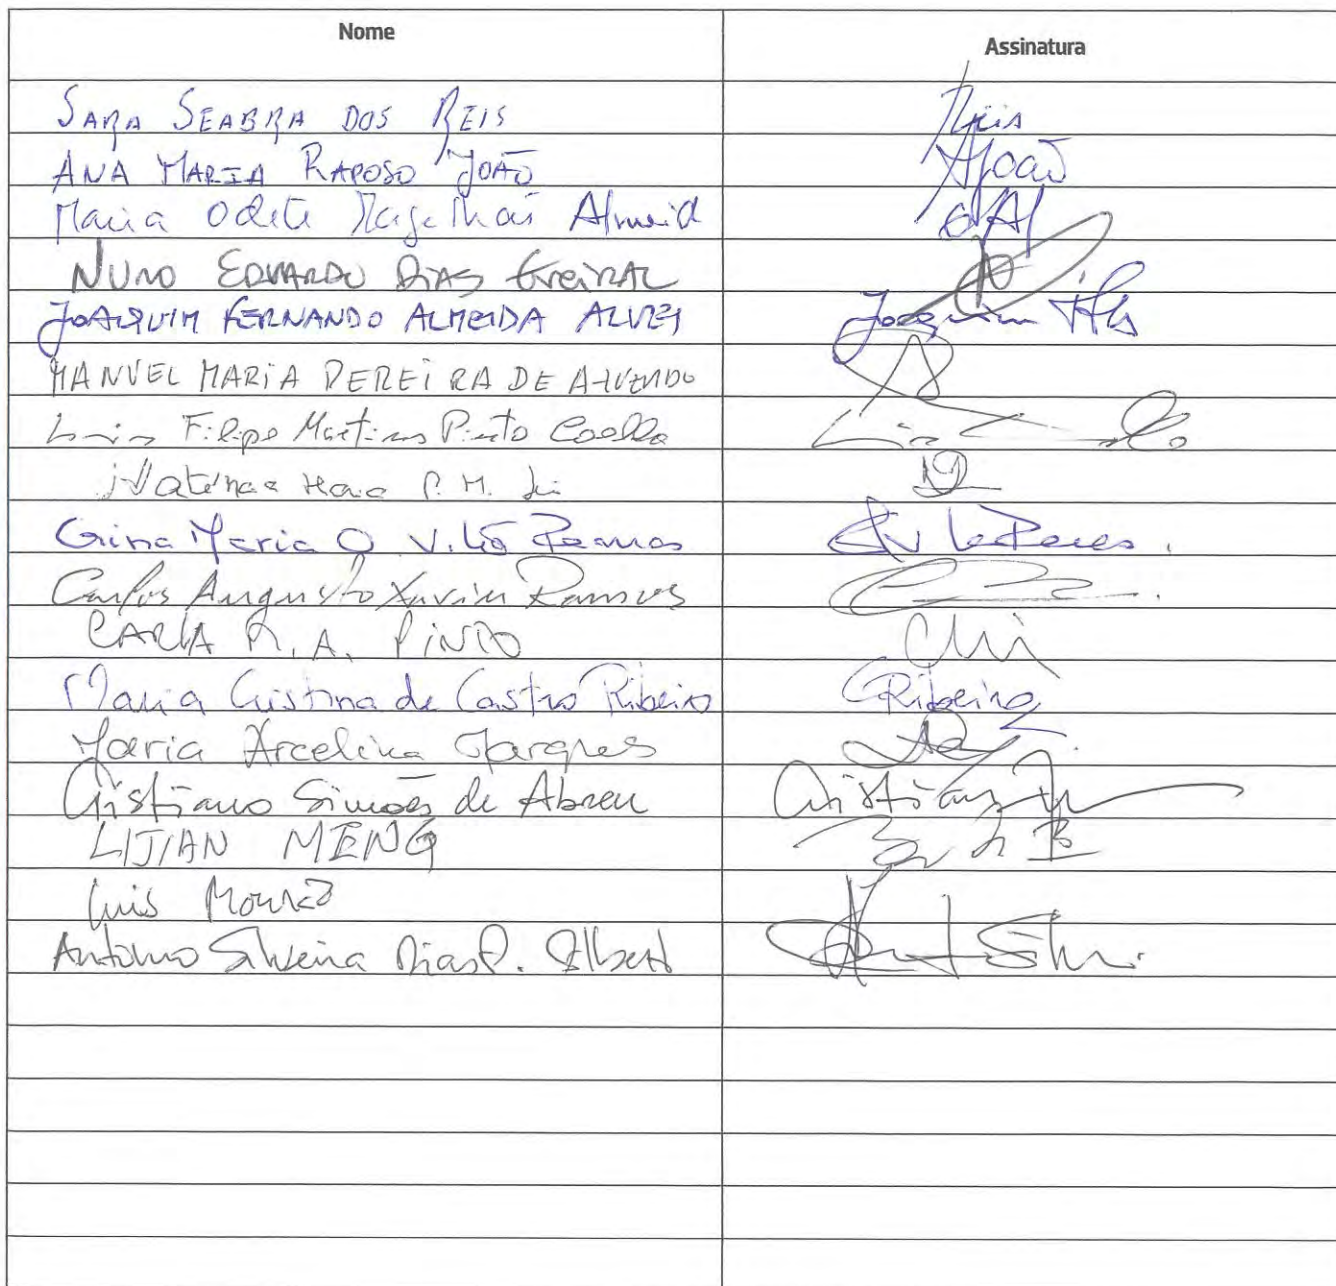 Nome Assinatura
SARA SEABRA DOS REIS Reis
ANA MARIA RAPOSO JOÃO AJoão
Maria Odete Magalhãis Almeid
NUNO EDUARDO DIAS
JOAQUIM FERNANDO ALMEIDA ALVES Joaquim
MANUEL MARIA PEREIRA DE AZEVEDO
Luis Filipe Martins Pinto Coelho Luis
P. M.
Gina Maria O. Vilão Ramos
Carlos Augusto Xavier Ramos
CARLA R. A. PINTO
Maria Cristina de Castro Ribeiro CRibeiro
Maria Arcelina Marques
Cristiano Simões de Abreu Cristiano
LIJIAN MENG
Luis Mourão
António Silveira Dias P.